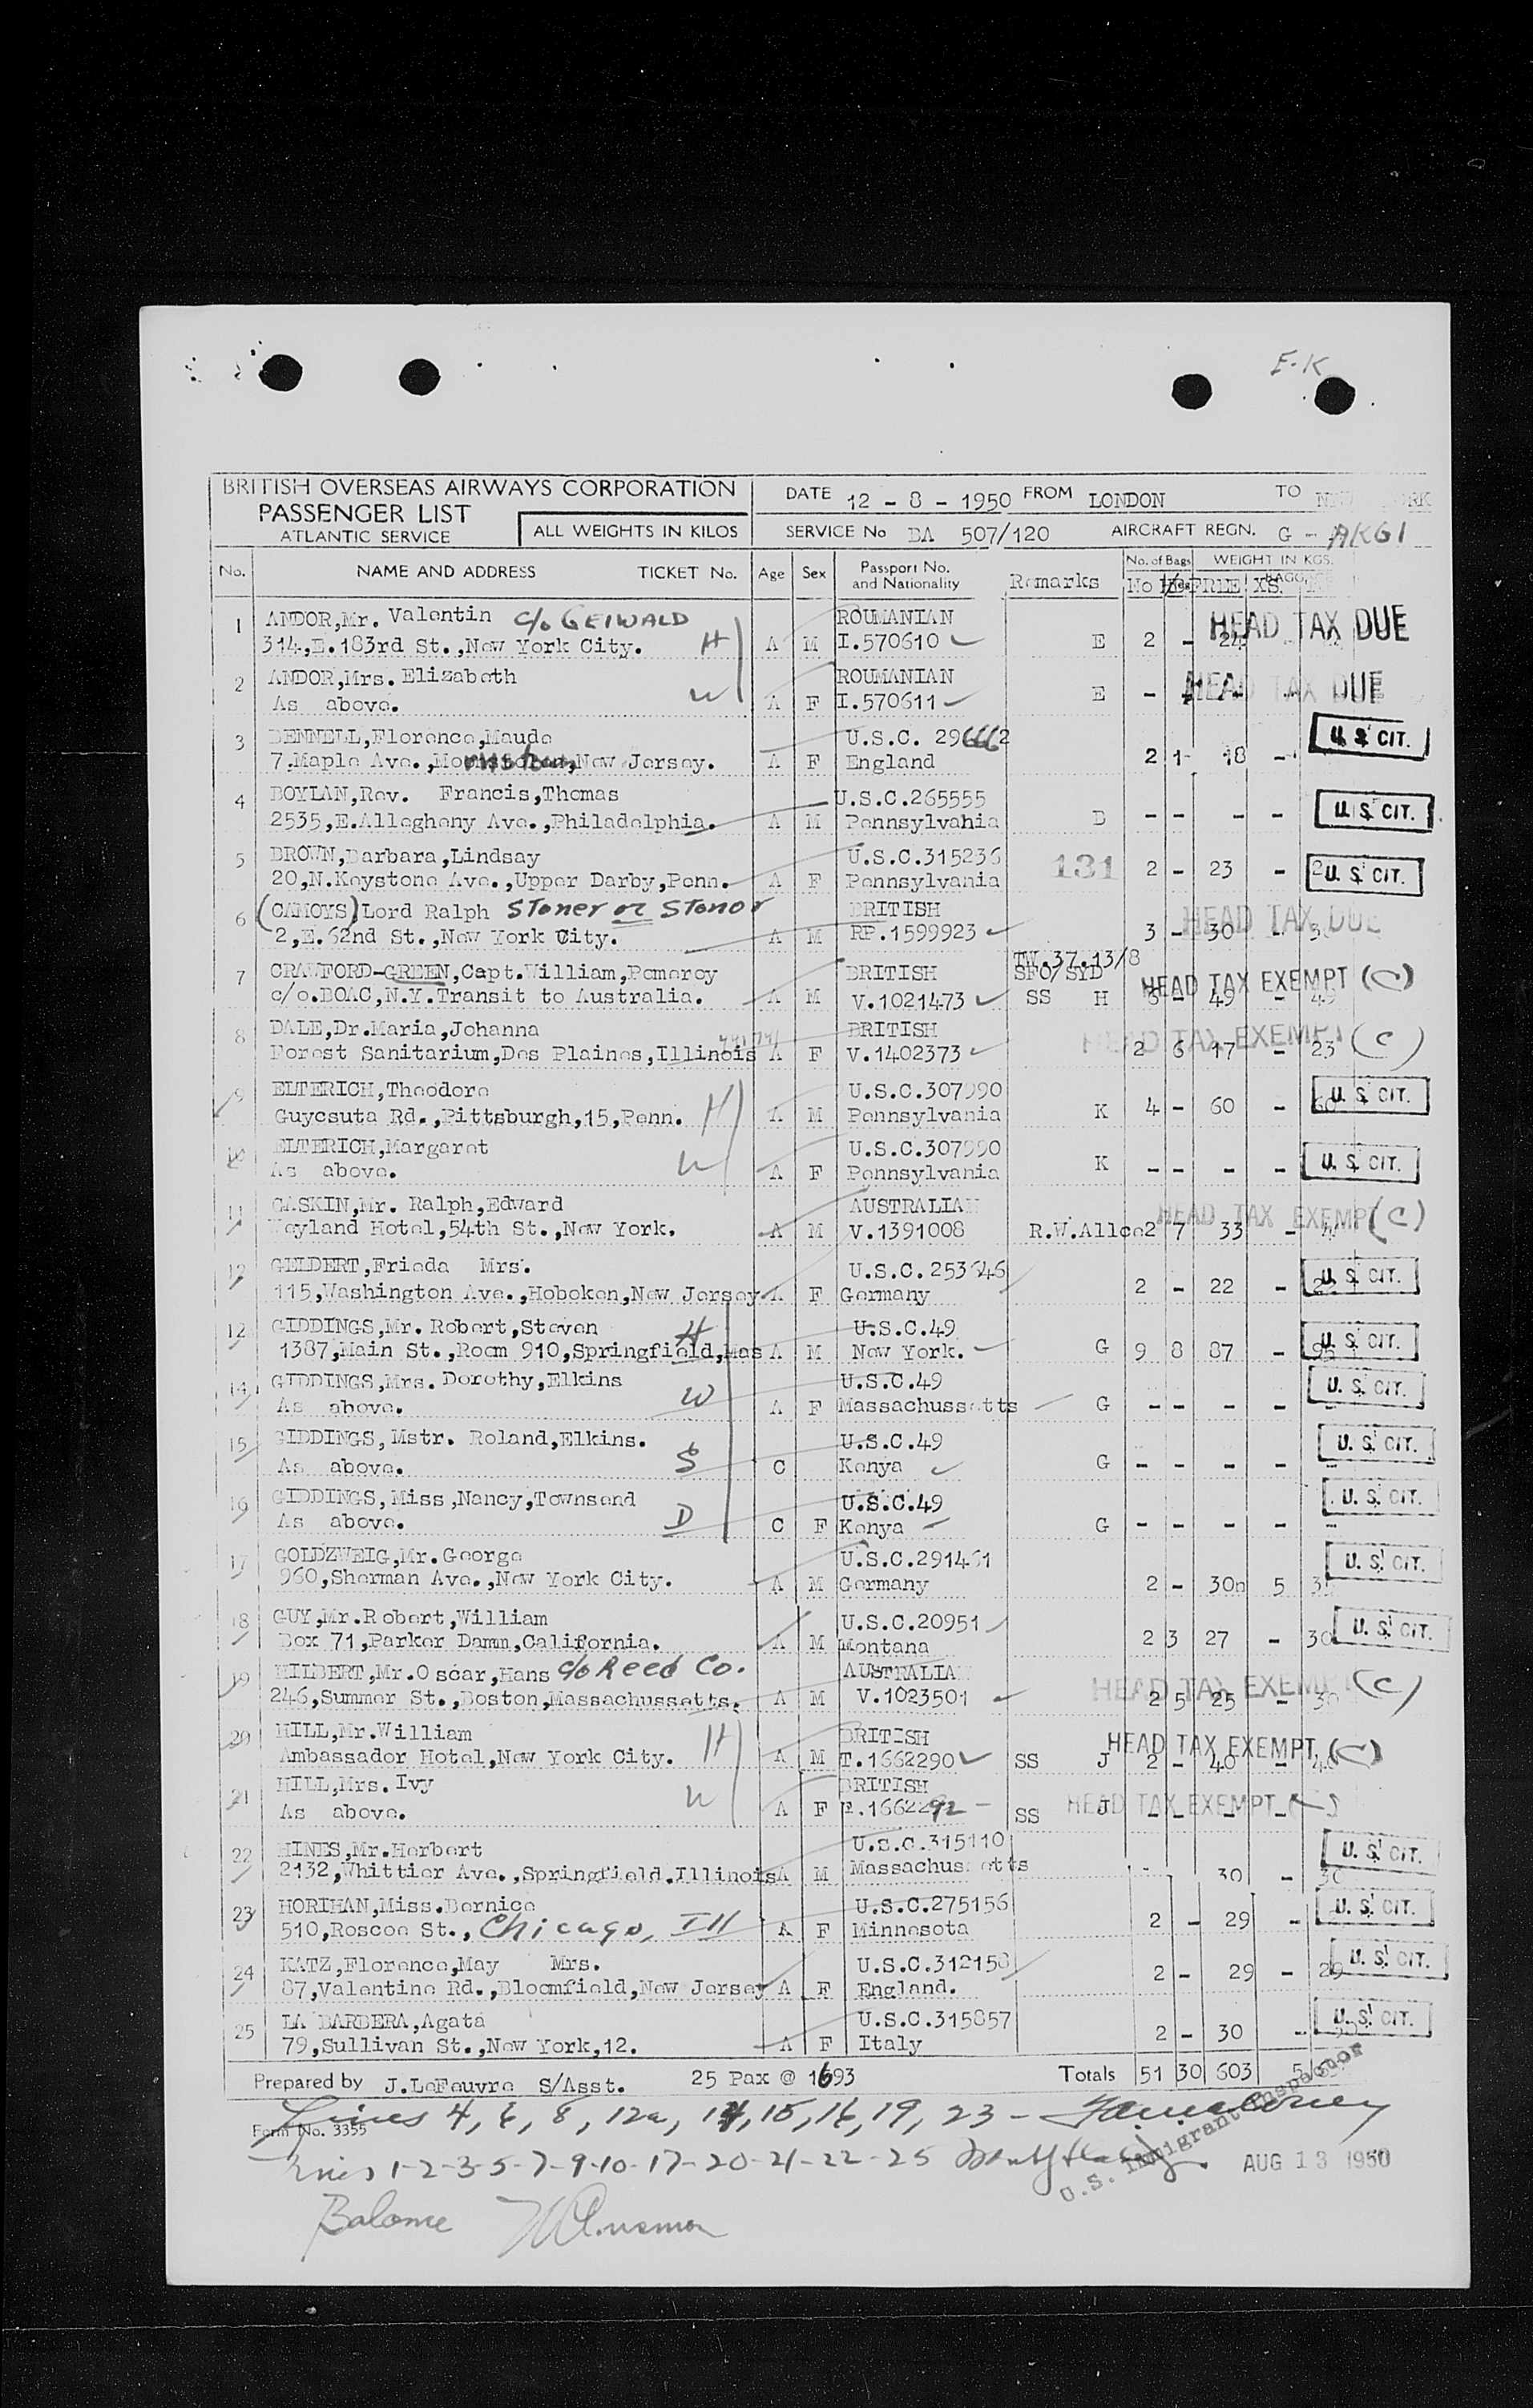 E-K
BRITISH OVERSEAS AIRWAYS CORPORATION
PASSENGER LIST
ATLANTIC SERVICE
ALL WEIGHTS IN KILOS
DATE 12 - 8 - 1950 FROM LONDON TO
SERVICE No BA 507/120 AIRCRAFT REGN. G - AKGI
No. NAME AND ADDRESS TICKET No. Age Sex Passport No. and Nationality Remarks No. of Bags WEIGHT IN KGS.
1 ANDOR,Mr. Valentin c/o GEIWALD ROUMANIAN HEAD TAX DUE
314,E.183rd St.,New York City. H A M I.570610 E 2 - 24
2 ANDOR,Mrs. Elizabeth ROUMANIAN HEAD TAX DUE
As above. W A F I.570611 E - -
3 BENNELL,Florence,Maude U.S.C. 296662 U.S. CIT.
7.Maple Ave., New Jersey. A F England 2 1 18 -
4 BOYLAN,Rev. Francis,Thomas U.S.C.265555
2535,E.Allegheny Ave.,Philadelphia. A M Pennsylvania B - - - - U.S. CIT.
5 BROWN,Barbara,Lindsay U.S.C.315236
20,N.Keystone Ave.,Upper Darby,Penn. A F Pennsylvania 131 2 - 23 - U.S. CIT.
6 (CAMOYS) Lord Ralph Stoner or Stonor BRITISH HEAD TAX DUE
2,E.62nd St.,New York City. A M RP.1599923 3 - 30 -
7 CRAWFORD-GREEN,Capt.William,Pomeroy BRITISH TW.37.13/8 SFO/SYD HEAD TAX EXEMPT (C)
c/o.BOAC,N.Y.Transit to Australia. A M V.1021473 SS H 3 - 49 - 49
8 DALE,Dr.Maria,Johanna BRITISH HEAD TAX EXEMPT (C)
Forest Sanitarium,Des Plaines,Illinois A F V.1402373 2 6 17 - 23
9 ELTERICH,Theodore U.S.C.307990
Guycsuta Rd.,Pittsburgh,15,Penn. H A M Pennsylvania K 4 - 60 - 60 U.S. CIT.
10 ELTERICH,Margaret U.S.C.307990
As above. W A F Pennsylvania K - - - - U.S. CIT.
11 GASKIN,Mr. Ralph,Edward AUSTRALIAN HEAD TAX EXEMPT (C)
Weyland Hotel,54th St.,New York. A M V.1391008 R.W.Allce 2 7 33 -
12 GELDERT,Frieda Mrs. U.S.C.253646
115,Washington Ave.,Hoboken,New Jersey A F Germany 2 - 22 - 22 U.S. CIT.
12 GIDDINGS,Mr. Robert,Steven H U.S.C.49
1387,Main St.,Room 910,Springfield,Mas A M New York. G 9 8 87 - 95 U.S. CIT.
14 GIDDINGS,Mrs. Dorothy,Elkins W U.S.C.49
As above. A F Massachussetts G - - - - U.S. CIT.
15 GIDDINGS,Mstr. Roland,Elkins. U.S.C.49
As above. S C Kenya G - - - - - U.S. CIT.
16 GIDDINGS,Miss,Nancy,Townsend U.S.C.49
As above. D C F Kenya G - - - - - U.S. CIT.
17 GOLDZWEIG,Mr.George U.S.C.291461
960,Sherman Ave.,New York City. A M Germany 2 - 30 5 35 U.S. CIT.
18 GUY,Mr.Robert,William U.S.C.20951
Box 71,Parker Damm,California. A M Montana 2 3 27 - 30 U.S. CIT.
19 HILBERT,Mr.Oscar,Hans c/o Reed Co. AUSTRALIAN HEAD TAX EXEMPT (C)
246,Summer St.,Boston,Massachussetts. A M V.1023501 2 5 25 - 30
20 HILL,Mr.William H BRITISH HEAD TAX EXEMPT (C)
Ambassador Hotel,New York City. A M T.1662290 SS J 2 - 40 - 40
21 HILL,Mrs. Ivy W BRITISH HEAD TAX EXEMPT (C)
As above. A F 1662292 SS J - - - -
22 HINES,Mr.Herbert U.S.C.315110 U.S. CIT.
2132,Whittier Ave.,Springfield,Illinois A M Massachussetts 30 - 30
23 HORIHAN,Miss.Bernice U.S.C.275156 U.S. CIT.
510,Roscoe St., Chicago, Ill A F Minnesota 2 - 29 -
24 KATZ,Florence,May Mrs. U.S.C.312158 U.S. CIT.
87,Valentine Rd.,Bloomfield,New Jersey A F England. 2 - 29 - 29
25 LA BARBERA,Agata U.S.C.315857 U.S. CIT.
79,Sullivan St.,New York,12. A F Italy 2 - 30 -
Prepared by J.LeFeuvre S/Asst. 25 Pax @ 1693 Totals 51 30 603 5
Lines 4, 6, 8, 12a, 14, 15, 16, 19, 23 -
Form No. 3355
Lines 1-2-3-5-7-9-10-17-20-21-22-25
U.S. Immigrant Inspector
AUG 13 1950
Balance